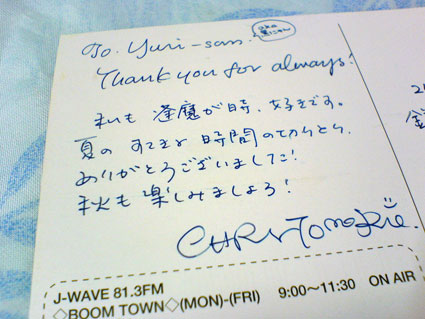 To. Yuri-san.
Thank you for always!
私も 逢魔が時、好きです。
夏の すてきな 時間の切りとり、
ありがとうございました!
秋も 楽しみましょう!
CHRIS TOMOKO
J-WAVE 81.3FM
◇BOOM TOWN◇(MON)-(FRI) 9:00~11:30 ON AIR